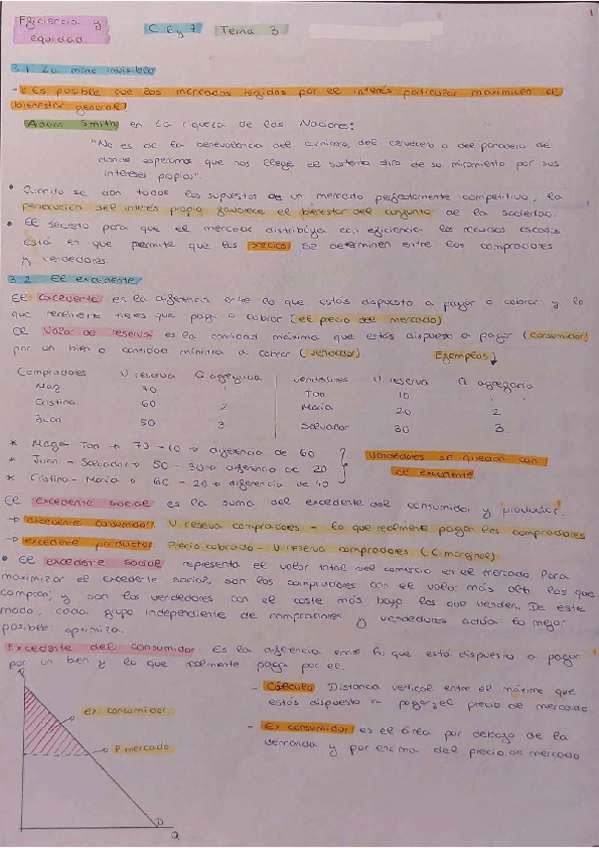 Eficiencia y equidad
C.E y 7
Tema 3
1
3.1 La mano invisible
- ¿Es posible que los mercados regidos por el interés particular maximicen el
bienestar general?
Adam Smith en La riqueza de las Naciones:
"No es de la benevolencia del carnicero, del cervecero o del panadero de
donde esperamos que nos llegue el sustento sino de su miramiento por sus
intereses propios".
• Cuando se dan todos los supuestos de un mercado perfectamente competitivo, la
del interés propio favorece el bienestar del conjunto de la sociedad.
• El secreto para que el mercado distribuya con eficiencia los recursos escasos
está en que permite que los precios se determinen entre los compradores
y vendedores.
3.2 El excedente
El excedente es la diferencia entre lo que estás dispuesto a pagar o cobrar y lo
que realmente tienes que pagar o cobrar (el precio del mercado).
El valor de reserva es la cantidad máxima que estás dispuesto a pagar (consumidor)
por un bien o cantidad mínima a cobrar (vendedor). Ejemplos
Compradores V reserva Q agregada
Maga 70 1
Cristina 60 2
Juan 50 3
Vendedores V. reserva Q agregada
Ton 10 1
María 20 2
Salvador 30 3
* Maga Ton → 70 - 10 → diferencia de 60
* Juan - Salvador → 50 - 30 → diferencia de 20
* Cristina - María → 60 - 20 → diferencia de 40
Vendedores se quedan con
el excedente
El excedente social es la suma del excedente del consumidor y productor.
→ excedente consumidor: V reserva compradores - Lo que realmente pagan los compradores
→ excedente productor: Precio cobrado - V reserva compradores (C marginal)
• El excedente social representa el valor total del comercio en el mercado. Para
maximizar el excedente social, son los compradores con el valor más alto los que
compran, y son los vendedores con el coste más bajo los que venden. De este
modo, cada grupo independiente de compradores y vendedores actúa lo mejor
posible optimiza.
Excedente del consumidor: Es la diferencia entre lo que está dispuesto a pagar
por un bien y lo que realmente paga por él.
P
ex consumidor
P mercado
D
Q
- Cálculo: Distancia vertical entre el máximo que
estás dispuesto a pagar y el precio de mercado
- Ex consumidor es el área por debajo de la
demanda y por encima del precio de mercado